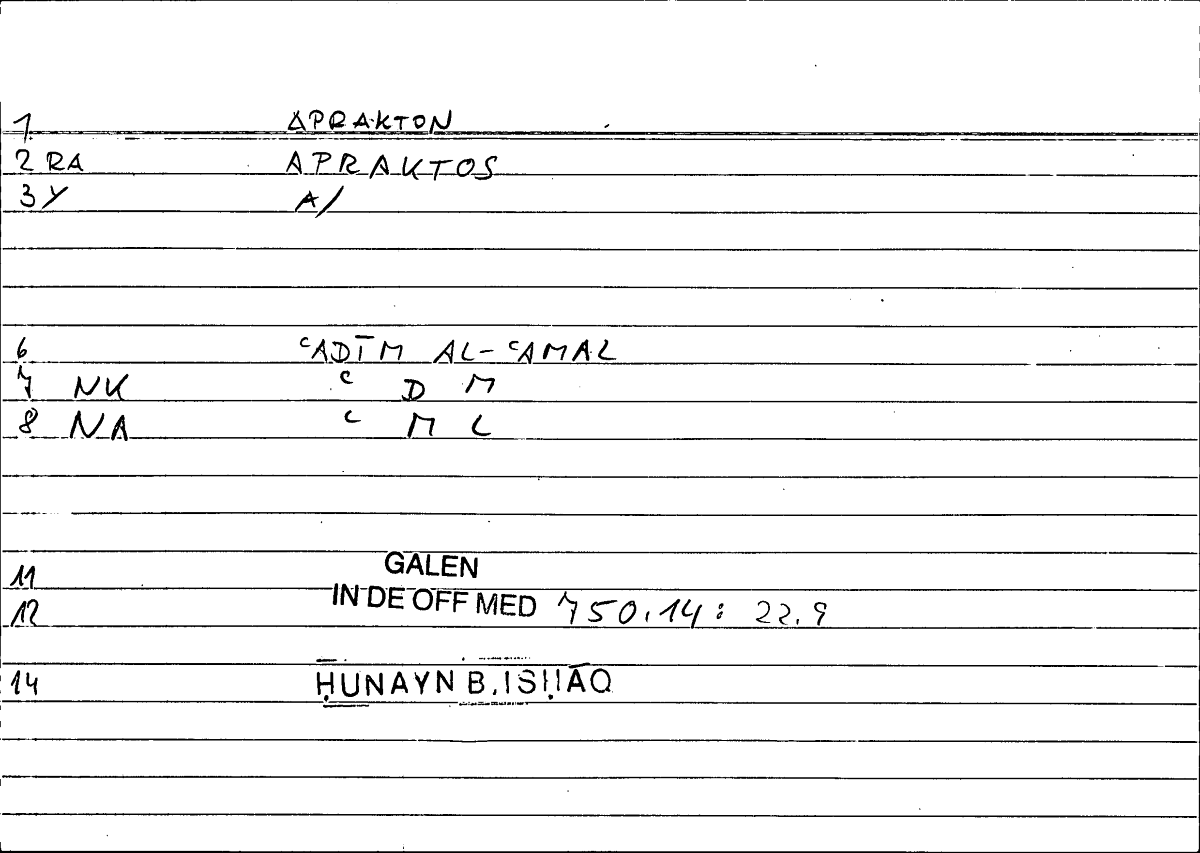 1 APRAKTON
2 RA APRAKTOS
3 Y A/
6 ʿADĪM AL-ʿAMAL
7 NK ʿ D M
8 NA ʿ M L
11 GALEN
12 IN DE OFF MED 750.14: 22.9
14 ḤUNAYN B. ISḤĀQ